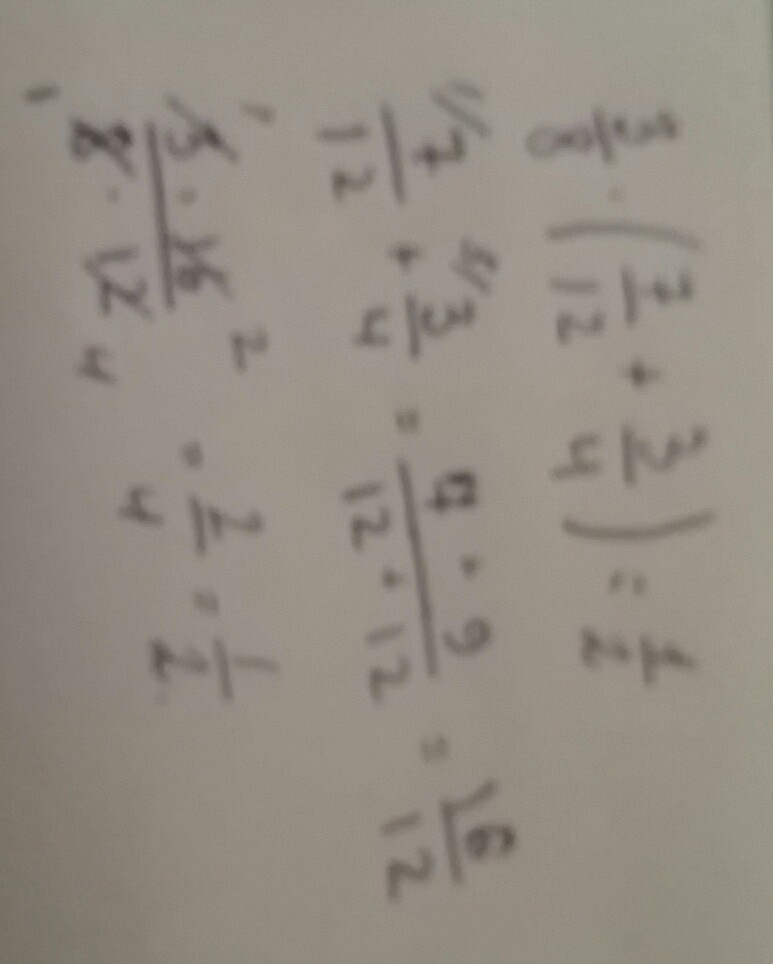 3/8 · (7/12 + 3/4) = 1/2
1/ 7/12 + 3/ 3/4 = 7 + 9 / 12 + 12 = 16/12
3 · 16 / 8 · 12 = 2/4 = 1/2